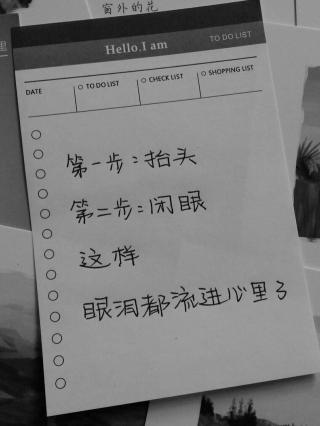 窗外的花
里
Hello.I am
TO DO LIST
DATE
TO DO LIST
CHECK LIST
SHOPPING LIST
第一步:抬头
第二步:闭眼
这样
眼泪都流进心里了